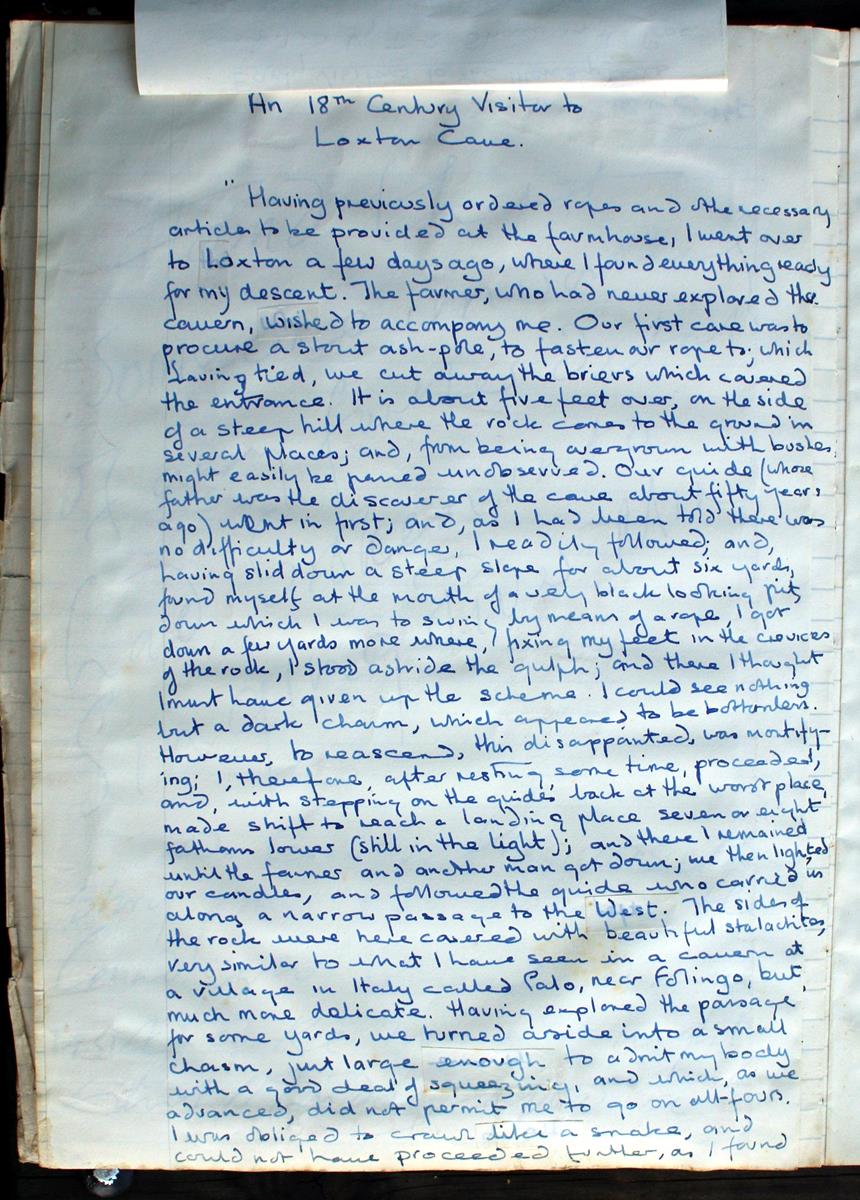 An 18th Century Visitor to
Loxton Cave.
" Having previously ordered ropes and othe necessary
articles to be provided at the farmhouse, I went over
to Loxton a few days ago, where I found everything ready
for my descent. The farmer, who had never explored the
cavern, wished to accompany me. Our first care was to
procure a stout ash-pole, to fasten our rope to; which
having tied, we cut away the briers which covered
the entrance. It is about five feet over, on the side
of a steep hill where the rock comes to the ground in
several places; and, from being overgrown with bushes,
might easily be passed unobserved. Our guide (whose
father was the discoverer of the cave about fifty years
ago) went in first; and, as I had been told there was
no difficulty or danger, I readily followed; and,
having slid down a steep slope for about six yards,
found myself at the mouth of a very black looking pit,
down which I was to swing by means of a rope, I got
down a few yards more where, fixing my feet in the crevices
of the rock, I stood astride the gulph; and there I thought
I must have given up the scheme. I could see nothing
but a dark chasm, which appeared to be bottomless.
However, to reascend, this disappointed, was mortify-
ing; I, therefore, after resting some time, proceeded,
and, with stepping on the guides back at the worst place,
made shift to reach a landing place seven or eight
fathoms lower (still in the light); and there I remained
until the farmer and another man got down; we then lighted
our candles, and followed the guide who carried us
along a narrow passage to the West. The sides of
the rock were here covered with beautiful stalactites,
very similar to what I have seen in a cavern at
a village in Italy called Palo, near Folingo, but,
much more delicate. Having explored the passage
for some yards, we turned aside into a small
chasm, just large enough to admit my body
with a good deal of squeezing, and which, as we
advanced, did not permit me to go on all-fours.
I was obliged to crawl like a snake, and
could not have proceeded further, as I found